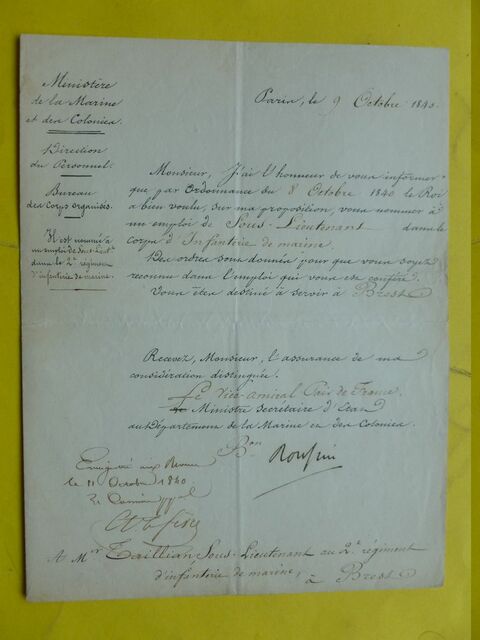 Ministère
de la Marine
et des Colonies.
Paris, le 9 Octobre 1840.
Direction
du Personnel.
Bureau
des Corps organisés.
Il est nommé à
un emploi de Sous-Lieutt
dans le 2e régiment
d'infanterie de marine.
Monsieur, J'ai l'honneur de vous informer
que par Ordonnance du 8 Octobre 1840 le Roi
a bien voulu, sur ma proposition, vous nommer à
un emploi de Sous-Lieutenant dans le
Corps d'Infanterie de marine.
Des ordres sont donnés pour que vous soyez
reconnu dans l'emploi qui vous est conféré.
Vous êtes destiné à servir à Brest
Recevez, Monsieur, l'assurance de ma
considération distinguée.
Le Vice-Amiral Pair de France,
Ministre Secrétaire d'Etat
au Département de la Marine et des Colonies.
Bon Roussin
Enregistré aux Revues
le 11 Octobre 1840
A Mr Taillian Sous-Lieutenant au 2e régiment
d'infanterie de marine, à Brest